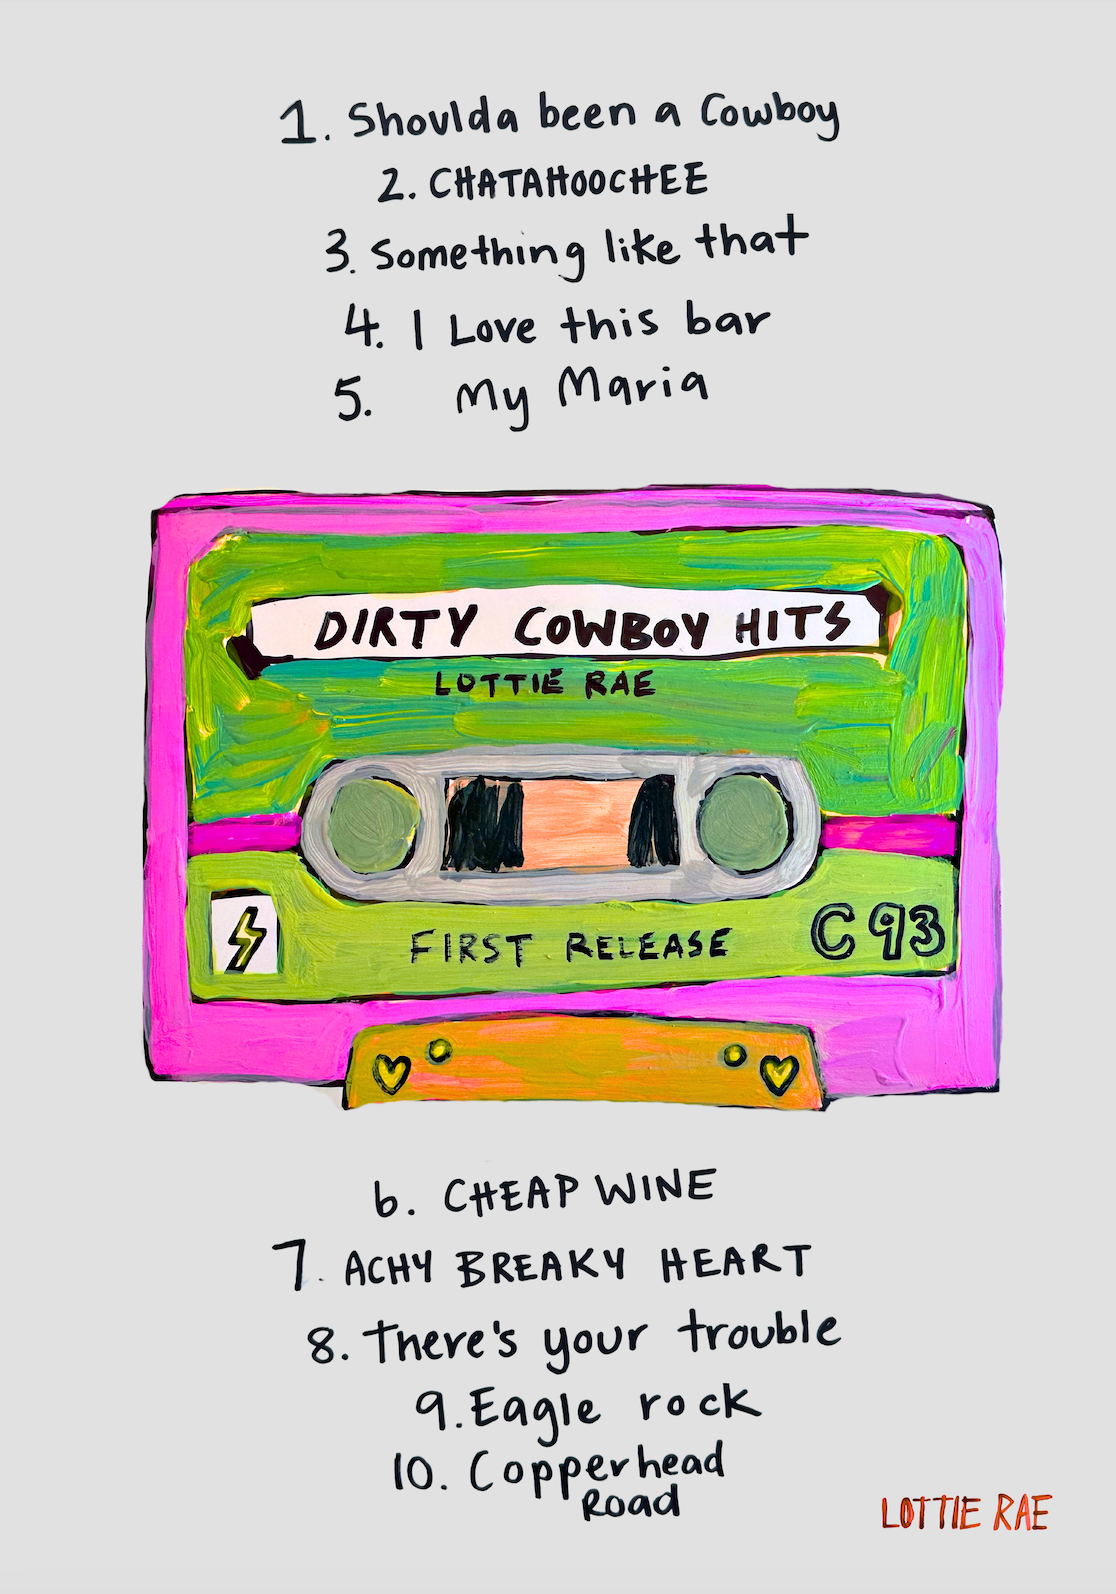 1. Shoulda been a Cowboy
2. CHATAHOOCHEE
3. Something like that
4. I Love this bar
5. My Maria
DIRTY COWBOY HITS
LOTTIE RAE
FIRST RELEASE
C 93
6. CHEAP WINE
7. ACHY BREAKY HEART
8. There's your trouble
9. Eagle rock
10. Copperhead
Road
LOTTIE RAE